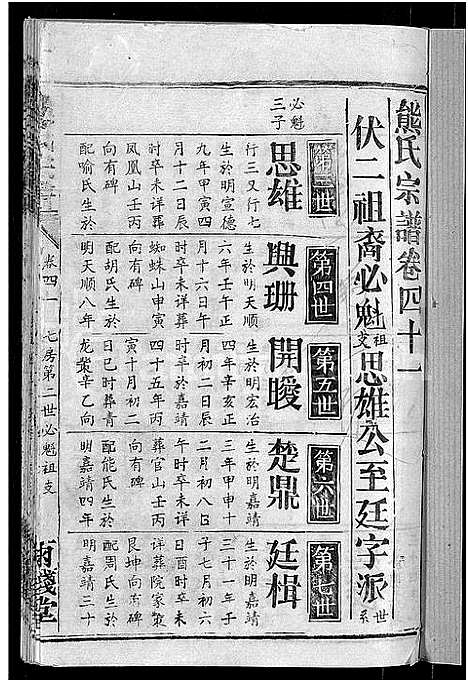 熊氏宗譜卷四十一
伏二祖裔必魁祖支思雄公至廷字派世系
第三世
第四世
第五世
第六世
第七世
必魁
三子
思雄
行三又行七
生於明宣德
九年甲寅四
月十二日辰
時卒未詳葬
鳳凰山壬丙
向有碑
配喻氏生於
與珊
生於明天順
六年壬午正
月十六日午
時卒未詳葬
蜘蛛山申寅
向有碑
配胡氏生於
明天順八年
開曖
生於明宏治
四年辛亥正
月初二日辰
時卒於嘉靖
四十五年丙
寅十月初二
日巳時葬青
龍嘴辛乙向
楚鼎
生於明嘉靖
三年甲申十
二月初八日
午時卒未詳
葬官山壬丙
向有碑
配熊氏生於
明嘉靖四年
廷楫
生於明嘉靖
三十一年壬
子七月初六
日酉時卒未
詳葬院家嘴
艮坤向有碑
配周氏生於
明嘉靖三十
卷四一
七房第二世必魁祖支
兩錢堂